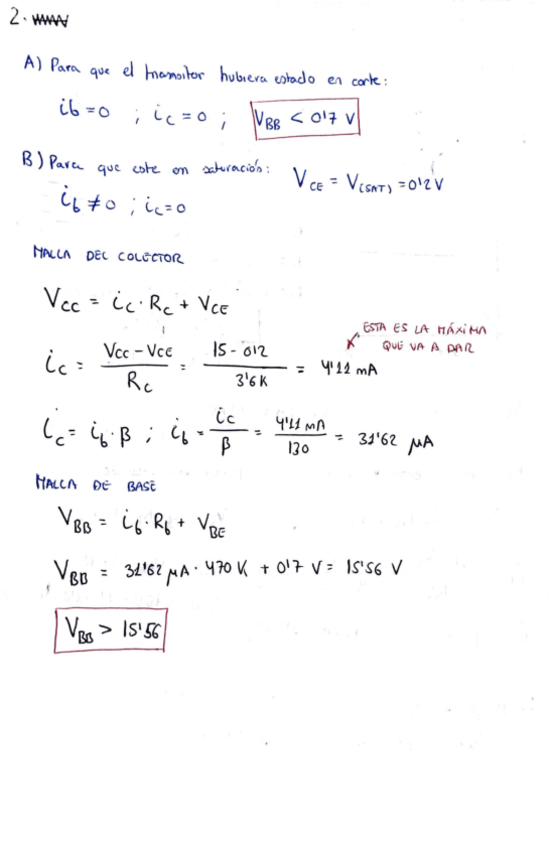 2.
A) Para que el transitor hubiera estado en corte:
ib = 0 ; ic = 0 ; VBB < 0'7 V
B) Para que este en saturación: VCE = V(SAT) = 0'2 V
ib ≠ 0 ; ic = 0
MALLA DEL COLECTOR
VCC = ic · RC + VCE
ESTA ES LA MÁXIMA
QUE VA A DAR
ic = (VCC - VCE) / RC = (15 - 0'2) / 3'6 K = 4'11 mA
ic = ib · β ; ib = ic / β = 4'11 mA / 130 = 31'62 μA
MALLA DE BASE
VBB = ib · Rb + VBE
VBB = 31'62 μA · 470 K + 0'7 V = 15'56 V
VBB > 15'56